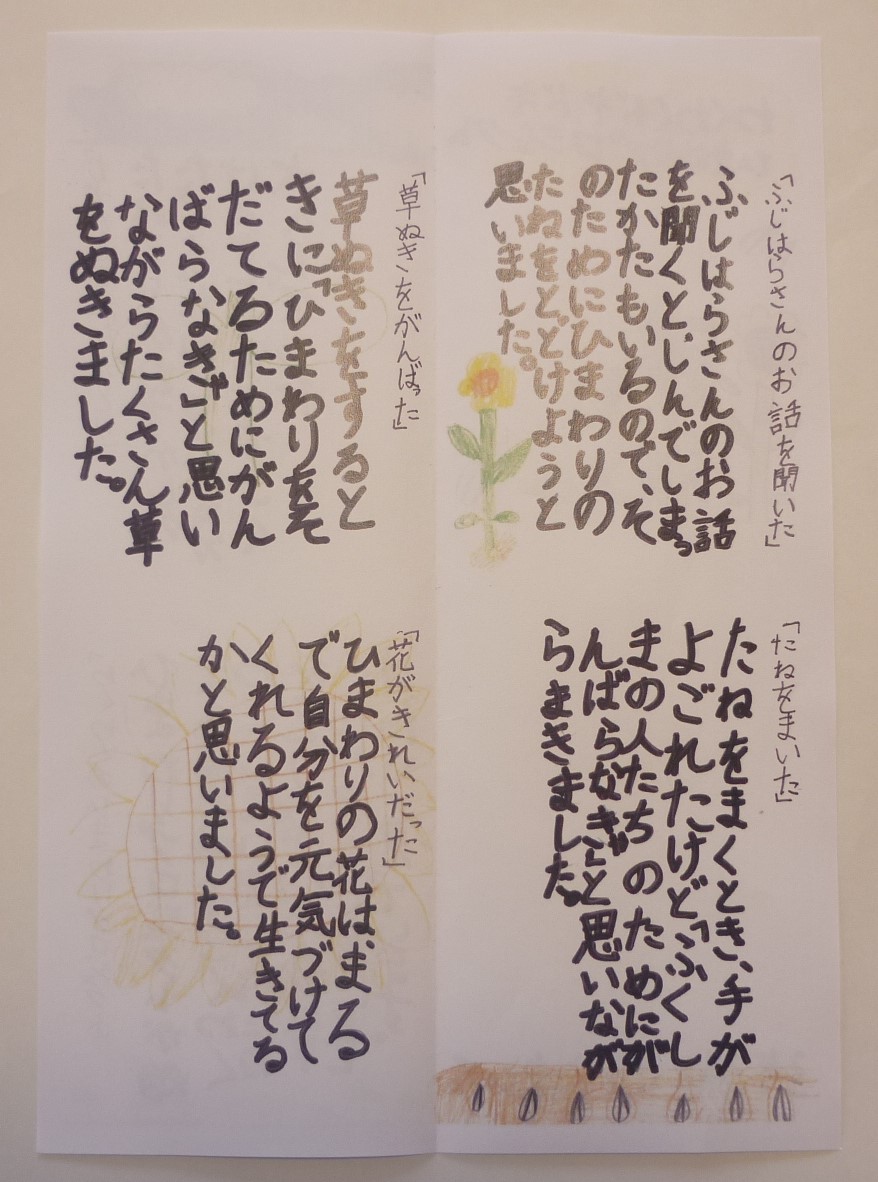 「ふじはらさんのお話を聞いた」
ふじはらさんのお話
を聞くと、しんでしまっ
たかたもいるので、そ
のためにひまわりの
たねをとどけようと
思いました。
「たねをまいた」
たねをまくとき、手が
よごれたけど「ふくし
まの人たちのためにが
んばらなきゃ」と思いなが
らまきました。
「草ぬきをがんばった」
草ぬきをすると
きに「ひまわりをそ
だてるためにがん
ばらなきゃ」と思い
ながらたくさん草
をぬきました。
「花がきれいだった」
ひまわりの花は、まる
で自分を元気づけて
くれるようで生きてる
かと思いました。